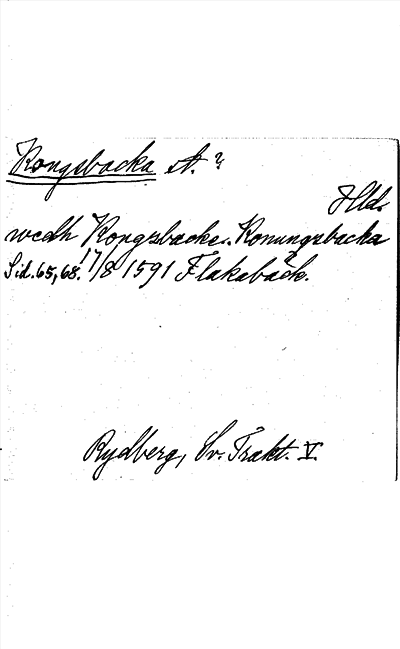 Kongsbacka st.?
Hld.
wedh Kongzbacke. Konungzbacka
Sid. 65, 68. 17/8 1591 Flakabäck.
Rydberg, Sv. Trakt. V.